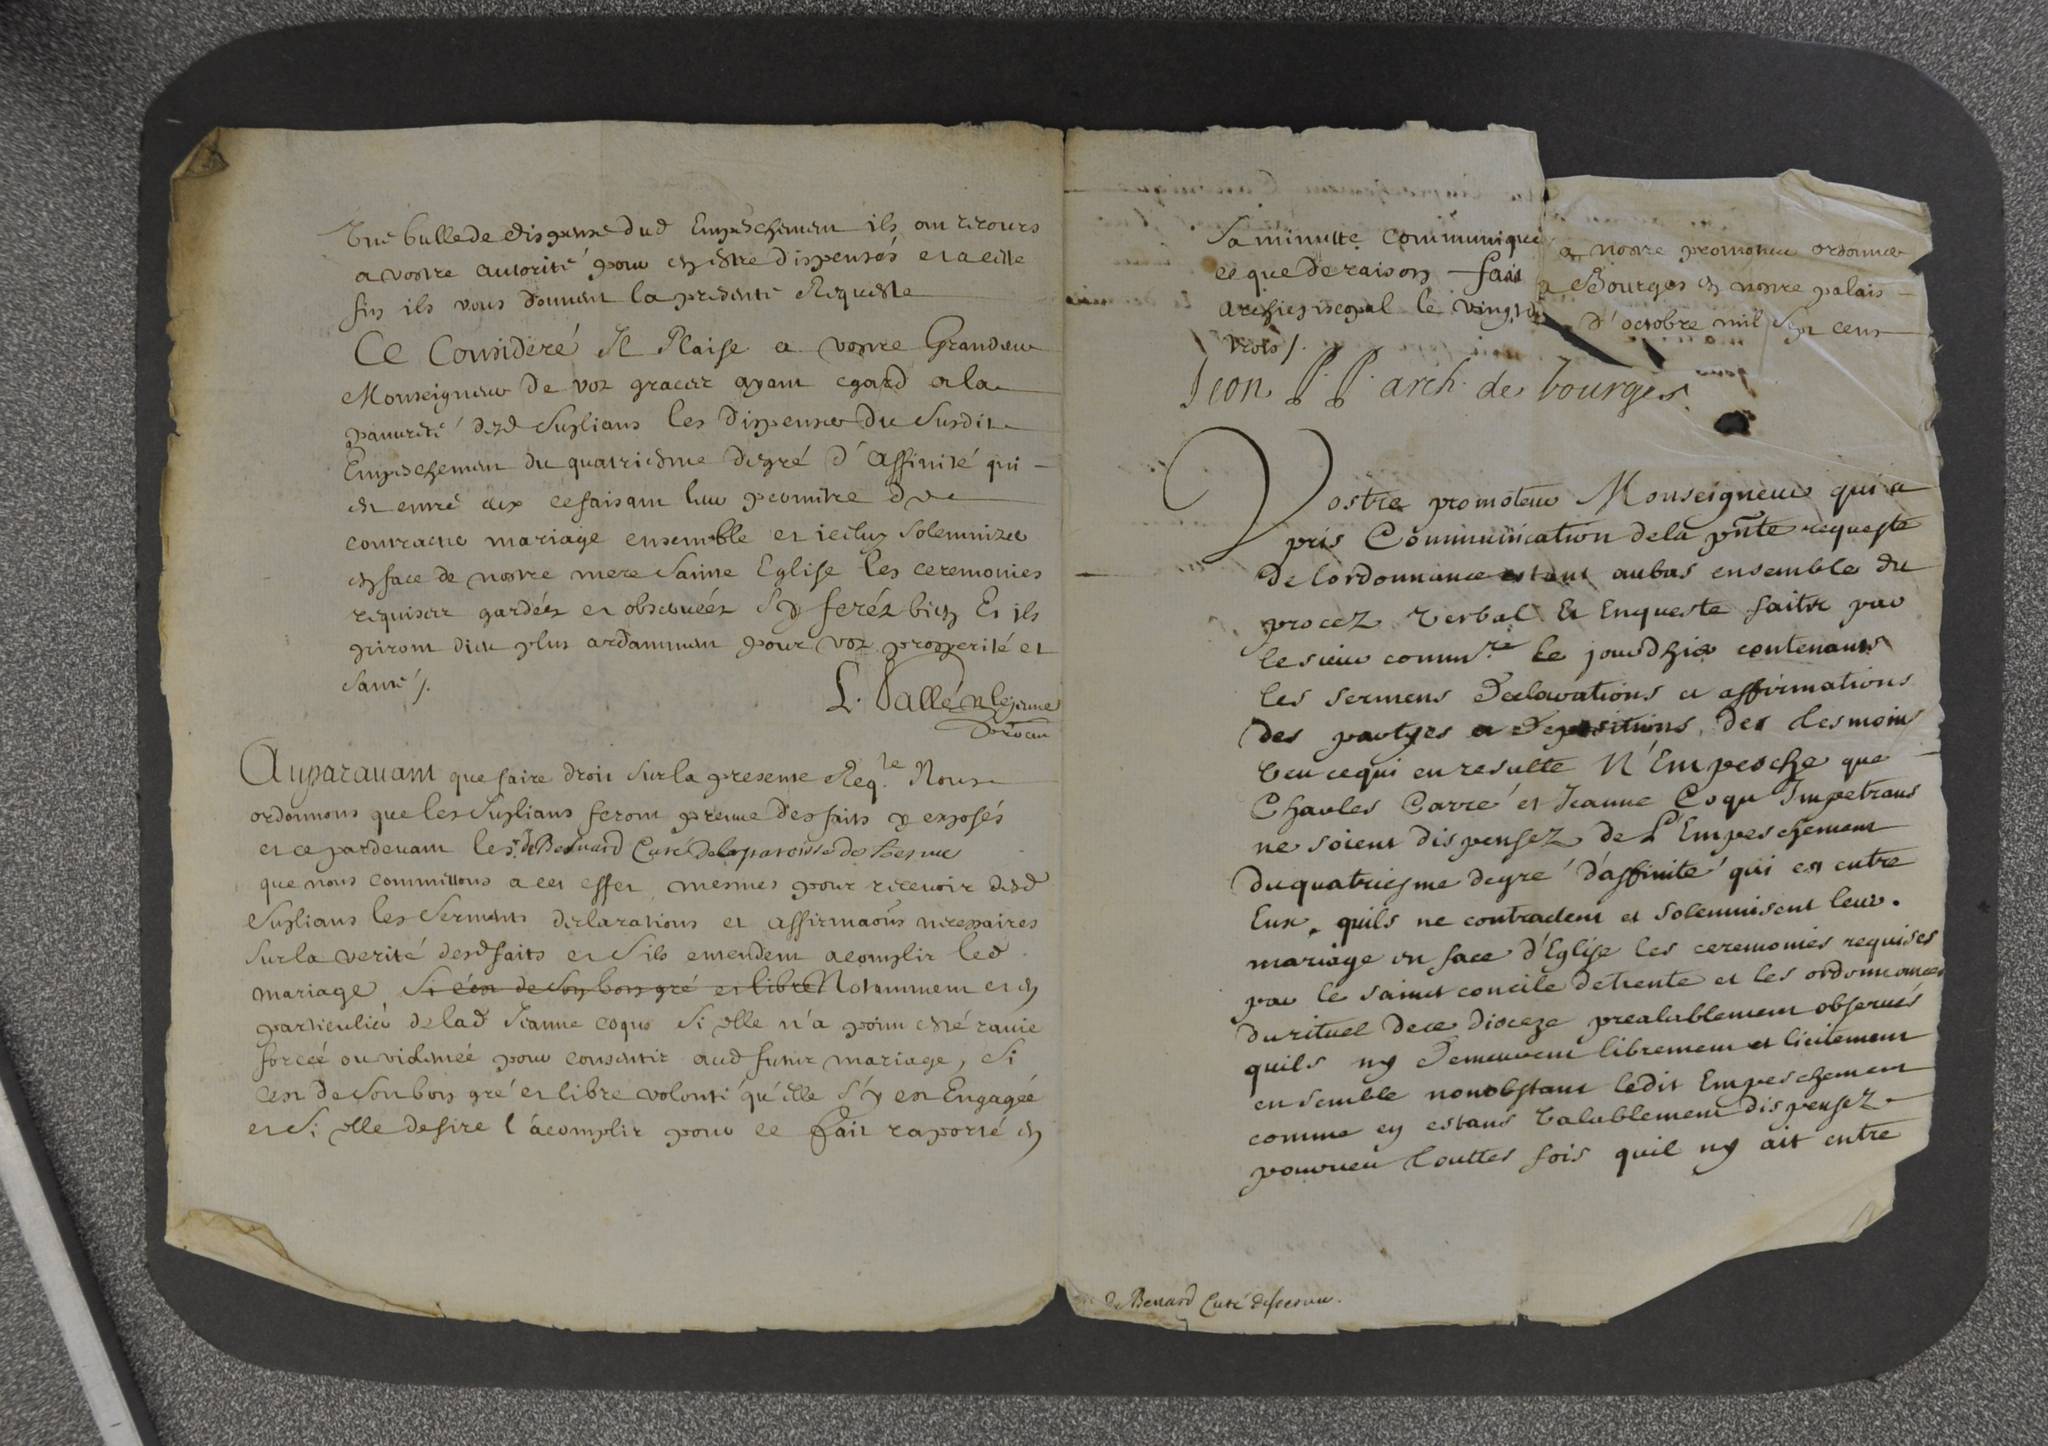 Une bulle de dispense dud Empeschement ils ont recours
a vostre autorité pour en estre dispensés et a cette
fin ils vous donnent la presente Requeste
Ce Consideré Il Plaise a vostre Grandeur
Monseigneur de voz graces ayant egard a la
pauvreté desd Suplians les dispenser du Susdit
Empeschement du quatriesme degré d'affinité qui
est entre eux ce faisant leur permettre de
contracter mariage ensemble et iceluy Solemnizer
en face de nostre mere Sainte Eglise les ceremonies
requises gardées et observées S y feréz bien Et ils
priront dieu plus ardamment pour voz prosperité et
santé /.
L. Vallé le jeune
Auparavant que faire droit sur la presente Reqte Nous
ordonnons que les Suplians feront preuve des faits y exposés
et ce pardevant le sr de Benard Curé de la paroisse de
que nous committons a cet effet mesmes pour recevoir desd
Suplians les Serments declarations et affirmaōns necessaires
sur la verité desd faits et S'ils entendent acomplir led
mariage Si c'est de Son bon gré et libre Notamment et en
particulier de lad Jeanne Coqu Si elle n'a point esté ravie
forcée ou violentée pour consentir aud futur mariage, Si
c'est de Son bon gré et libre volonté qu'elle S'y est Engagée
et Si elle desire l'acomplir pour ce fait raporté en
Sa minutte communiqué a nostre promoteur ordonner
ce que de raison fait a Bourges en nostre palais
archiepiscopal le vingt d'octobre mil sept cens
trois /.
Jeon P. P. arch. de bourges.
Vostre promoteur Monseigneur qui a
pris Communication de la pn̄te requeste
de l'ordonnance estant au bas ensemble du
procez verbal et Enqueste faitte par
le sieur commre le jourdhier contenants
les sermens declarations et affirmations
des partyes et depositions des tesmoins
veu ce qui en resulte N'Empesche que
Charles Carré et Jeanne Coqu Impetrans
ne soient dispensez de L'Empeschement
du quatriesme degré d'affinité qui est entre
Eux, quils ne contractent et solemnisent leur
mariage en face d'Eglise les ceremonies requises
par le saint concile de trente et les ordonnances
du rituel de ce dioceze prealablement observés
quils ny demeurent librement et licitement
ensemble nonobstant ledit Empeschement
comme en estans valablement dispensez
pourveu touttes fois quil ny ait entre
de Benard Curé de